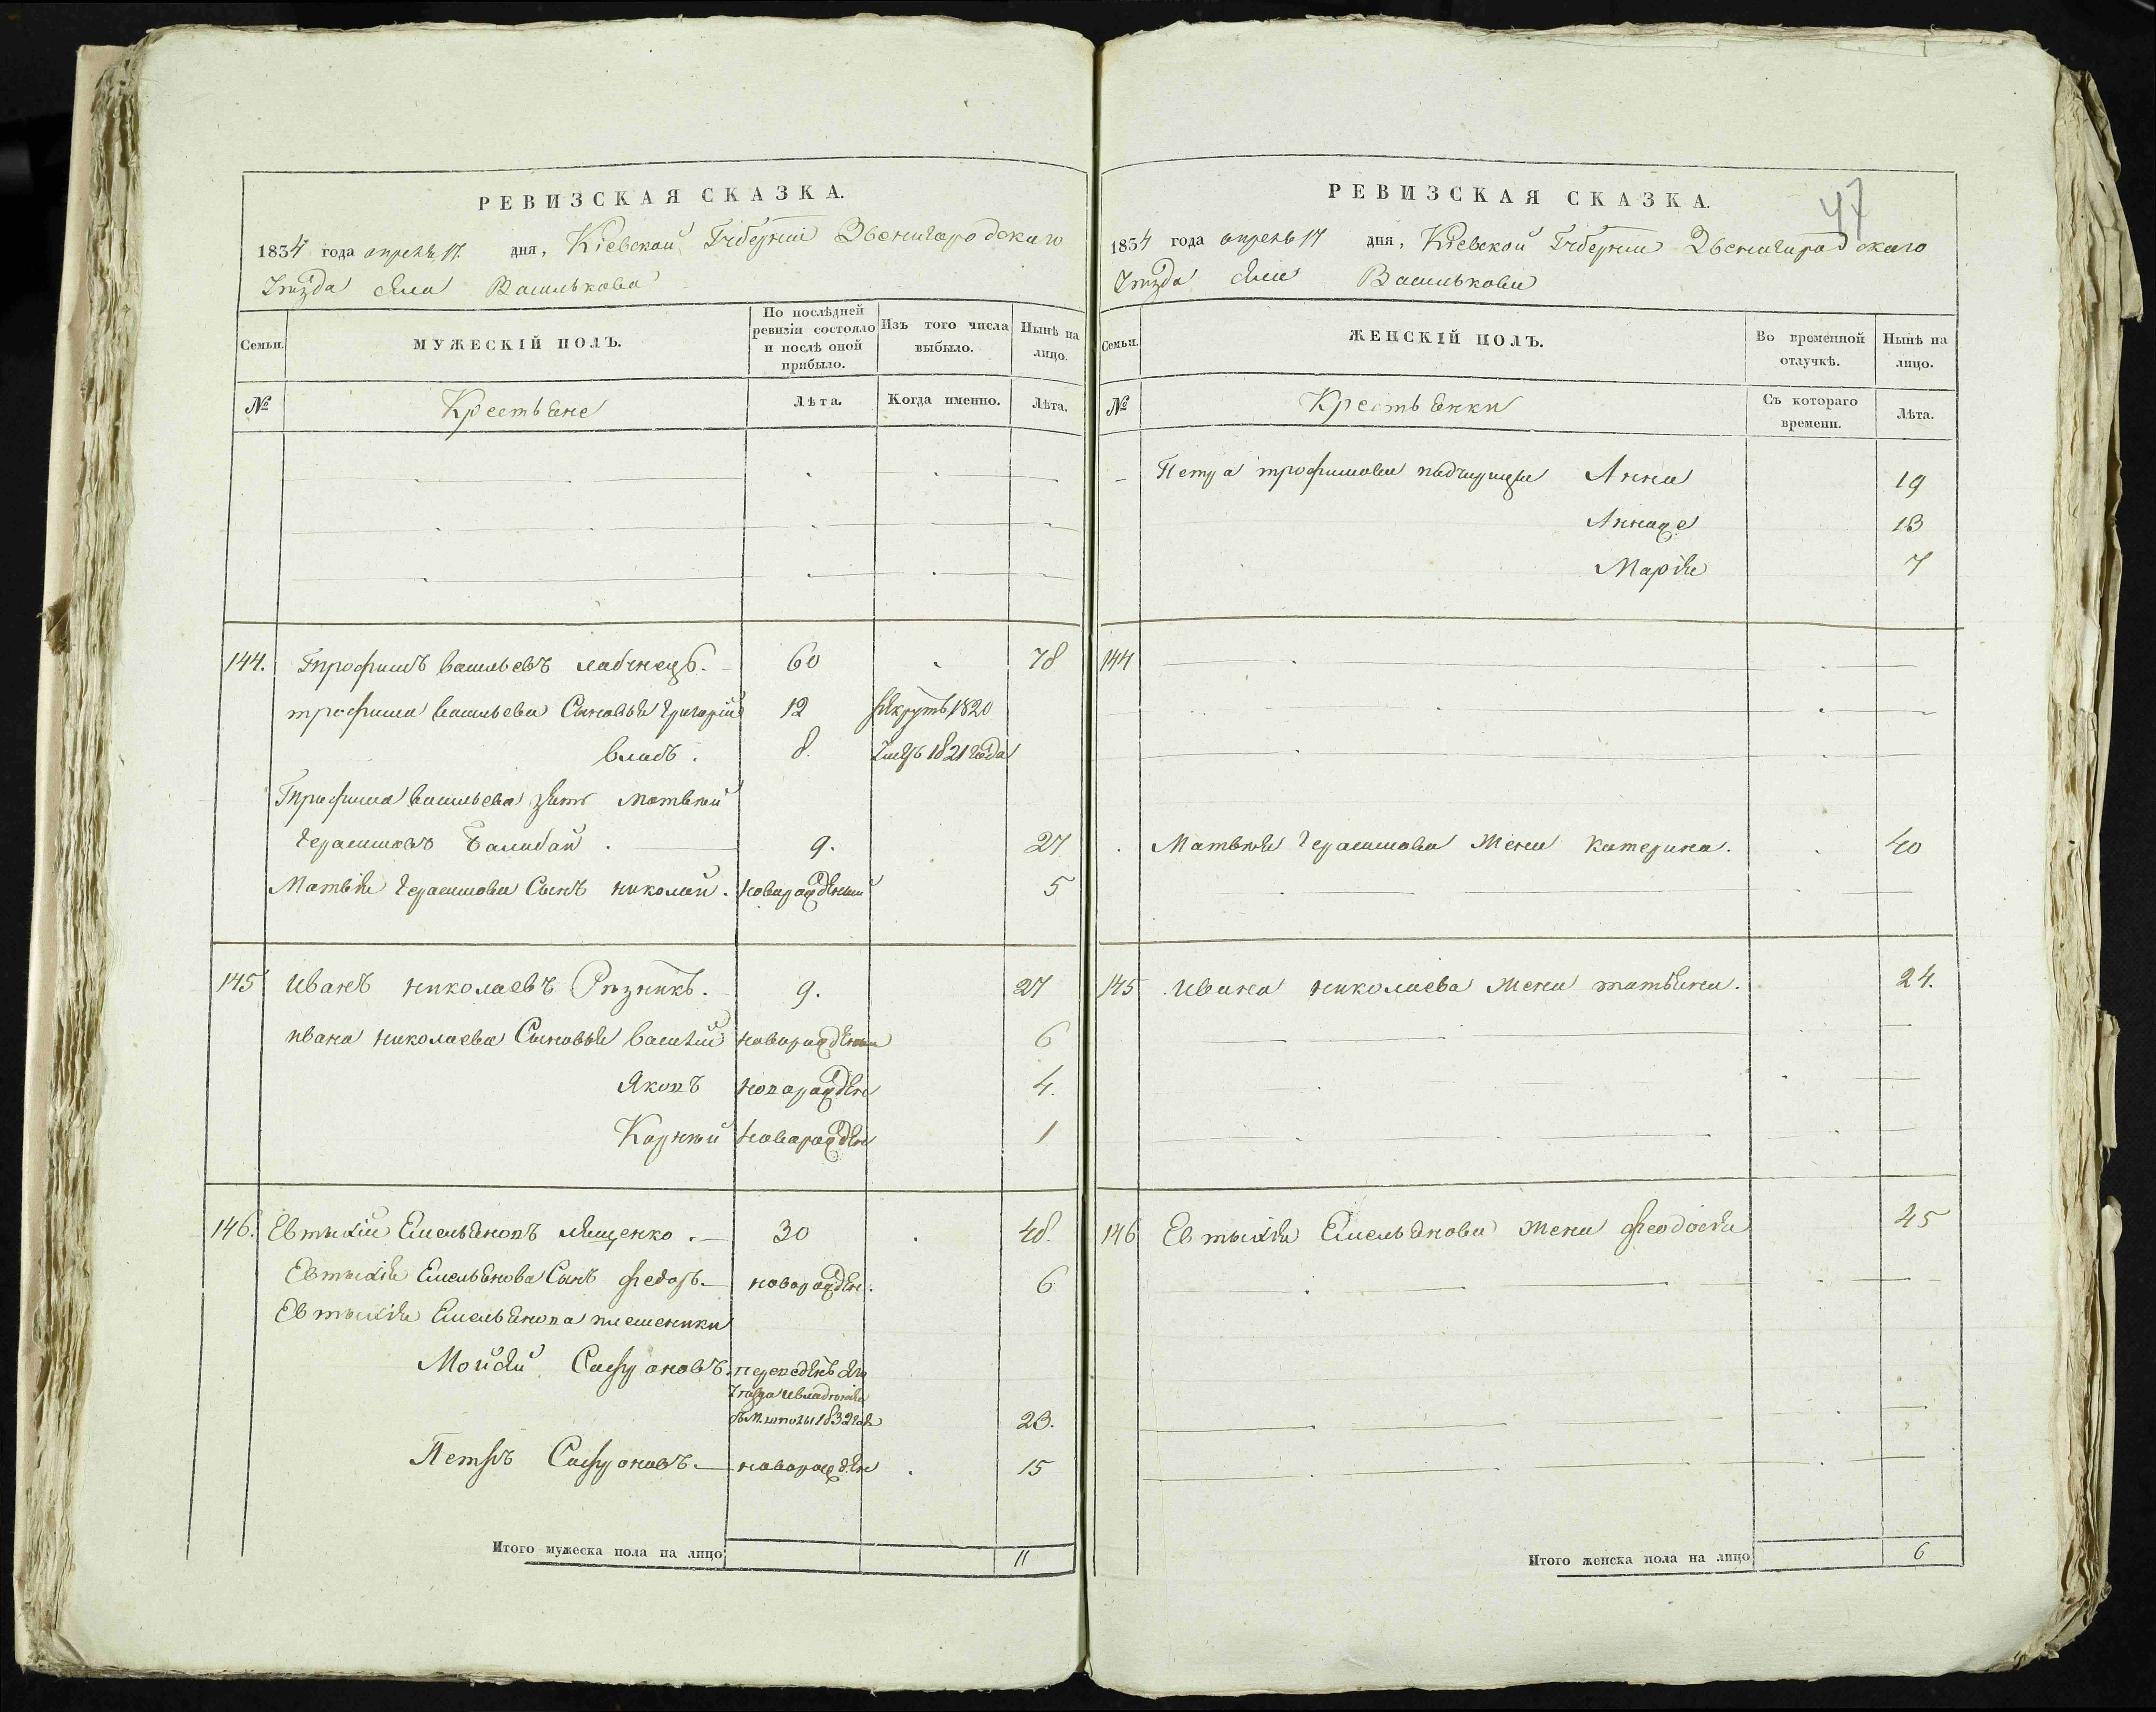 РЕВИЗСКАЯ СКАЗКА.
1834 года апрель 17. дня, Кіевской Губерніи Звенигородскаго
Уѣзда села Василькова
Семьи.
МУЖЕСКІЙ ПОЛЪ.
По послѣдней ревизіи состояло и послѣ оной прибыло.
Изъ того числа выбыло.
Нынѣ на лицо.
№
Крестьяне
Лѣта.
Когда именно.
Лѣта.
144. Трофимъ васильевъ 60 78
трофима васильева Сыновья григорій 12 рекрутъ 1820
власъ. 8. Умеръ 1821 года
Трофима васильева зять матвѣй
герасимовъ Балабай. 9. 27
Матвія герасимова Сынъ николай. новорожденный 5
145 Иванъ николаевъ Рѣзникъ. 9. 27
ивана николаева Сыновья василий новорожденны 6
Яковъ новорожден 4.
Корнѣй новорожден 1
146. Евтихій Емельяновъ Ященко. 30 48
Евтихія Емельянова Сынъ федоръ новорожден. 6
Евтихія Емельянова племеники
Мойсѣй переведенъ
1832 года 23.
Петръ новорожден 15
Итого мужеска пола на лицо 11
РЕВИЗСКАЯ СКАЗКА.
47
1834 года апрель 17 дня, Кіевской Губерніи Звенигородскаго
Уѣзда села Василькова
Семьи.
ЖЕНСКІЙ ПОЛЪ.
Во временной отлучкѣ.
Нынѣ на лицо.
№
Крестьянки
Съ котораго времени.
Лѣта.
Петра трофимова падчерицы Анна 19
Аннаже 13
Марія 7
144
Матвѣя герасимова Жена катерина. 40
145 ивана николаева жена татьяна. 24.
146 Евтихія Емельянова жена феодосія 45
Итого женска пола на лицо 6